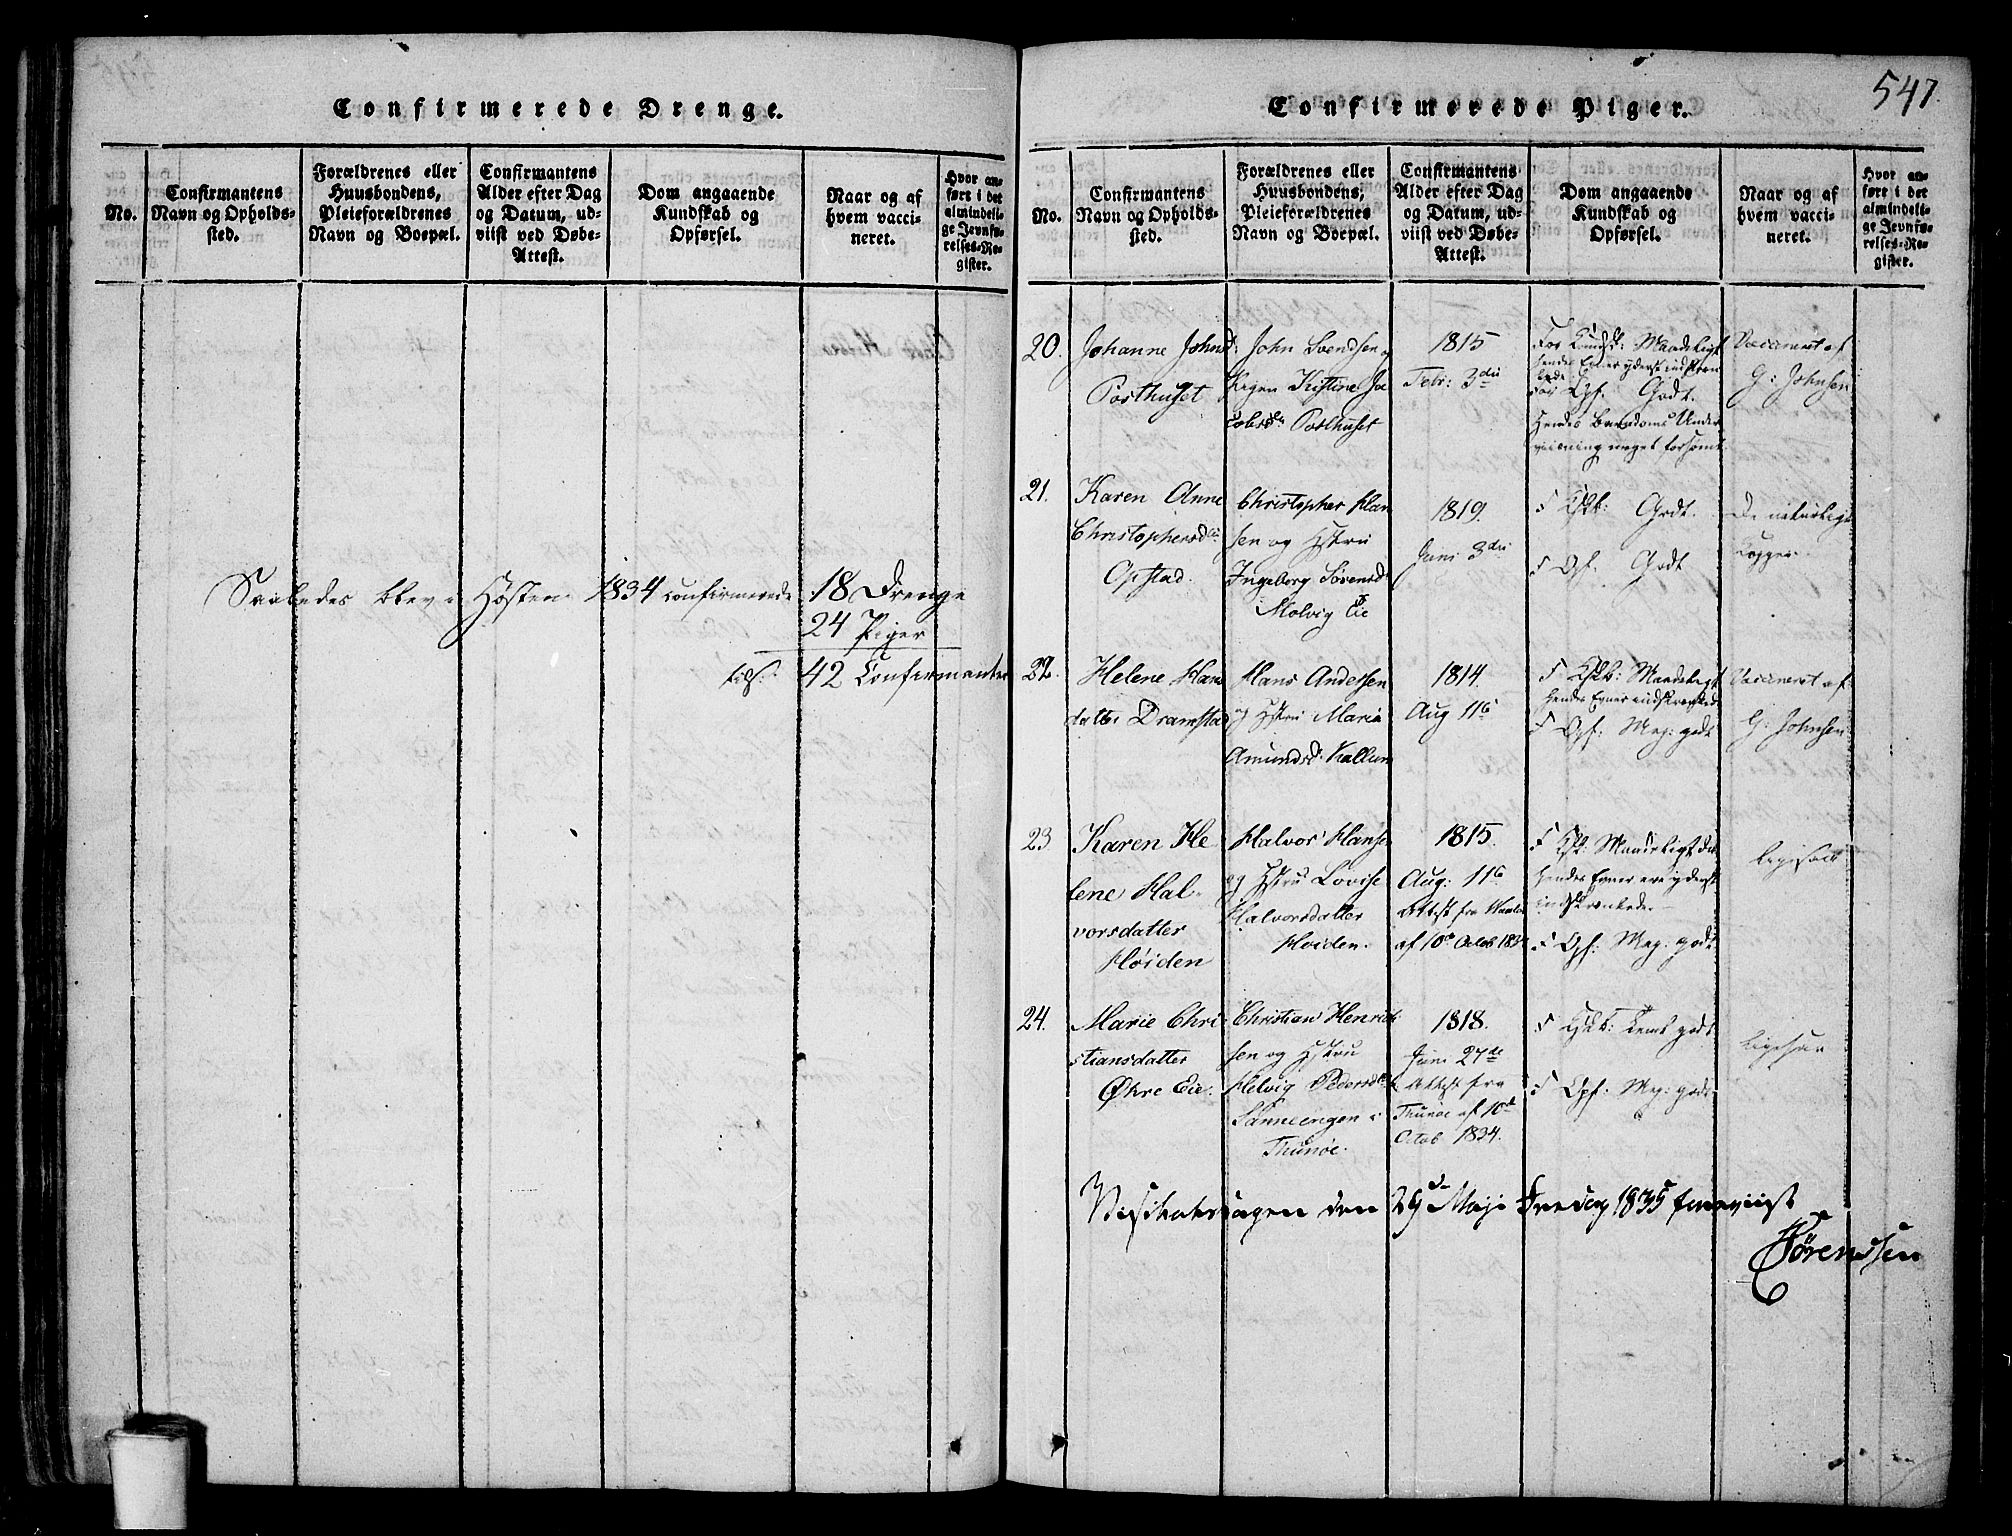 Confirmerede Drenge.
No.
Confirmantens
Navn og Opholds-
sted.
Forældrenes eller
Huusbondens,
Pleieforældrenes
Navn og Boepæl.
Confirmantens
Alder efter Dag
og Datum, ud-
viist ved Døbe-
Attest.
Dom angaaende
Kundskab og
Opførsel.
Naar og af
hvem vacci-
neret.
Hvor an-
ført i det
almindeli-
ge Jevnfø-
relses-Re-
gister.
Saaledes blev i Høsten 1834 confirmerede 18 Drenge
24 Piger
tils: 42 Confirmanter
547.
Confirmerede Piger.
No.
Confirmantens
Navn og Opholds-
sted.
Forældrenes eller
Huusbondens,
Pleieforældrenes
Navn og Boepæl.
Confirmantens
Alder efter Dag
og Datum, ud-
viist ved Døbe-
Attest.
Dom angaaende
Kundskab og
Opførsel.
Naar og af
hvem vacci-
neret.
Hvor an-
ført i det
almindeli-
ge Jevnfø-
relses-Re-
gister.
20.
Johanne Johnsd:
Posthuset
John Svendsen og
Kristine Ja
cobsd Posthuset
1815
Febr: 3die
For Kundsk: Maadeligt
hendes Evner yderst indskræn
kede
For Opf. Godt.
Hendes Barndoms Under
viisning meget forsømt
Vaccineret af
G: Johnsen
21.
Karen Anne
Christophersd
Opstad.
Christopher Han
sen og Hstru
Ingeborg Sörensd
Molvig Eie
1819.
Juni 3die
F Kskb: Godt.
F Opf. Godt
De naturlige
Kopper.
22.
Helene Hans
datter Dramstad
Hans Andersen
og Hstru Maria
Amundsd. Kallum
1814.
Aug 11te
F Kskb: Maadeligt
Hendes Evner indskrænkede
F Opf: Meg: godt
Vaccineret af
G: Johnsen
23
Karen He
lene Hal-
vorsdatter
Höiden
Halvor Hansen
og Hstru Lovise
Halvorsdatter
Hoiden.
1815.
Aug: 11te
Attest fra
af 10de Octob 1834
F Ksk: Maadeligt da
Hendes Evner ere yderst
indskrænkede
F Opf: Meg: godt
ligesaa
24.
Marie Chri-
stiansdatter
Øhre Eie.
Christian Henrik
sen og Hstru
Helvig Pedersd
Sanneengen i
Thunöe.
1818.
Juni 27de
Attest fra
Thunöe af 10de
Octob 1834.
F Kskb: Temt godt
F Opf: Meg: godt
ligesaa
Visitatsdagen den 29de Maji Fredag 1835 foreviist
Sörenssen